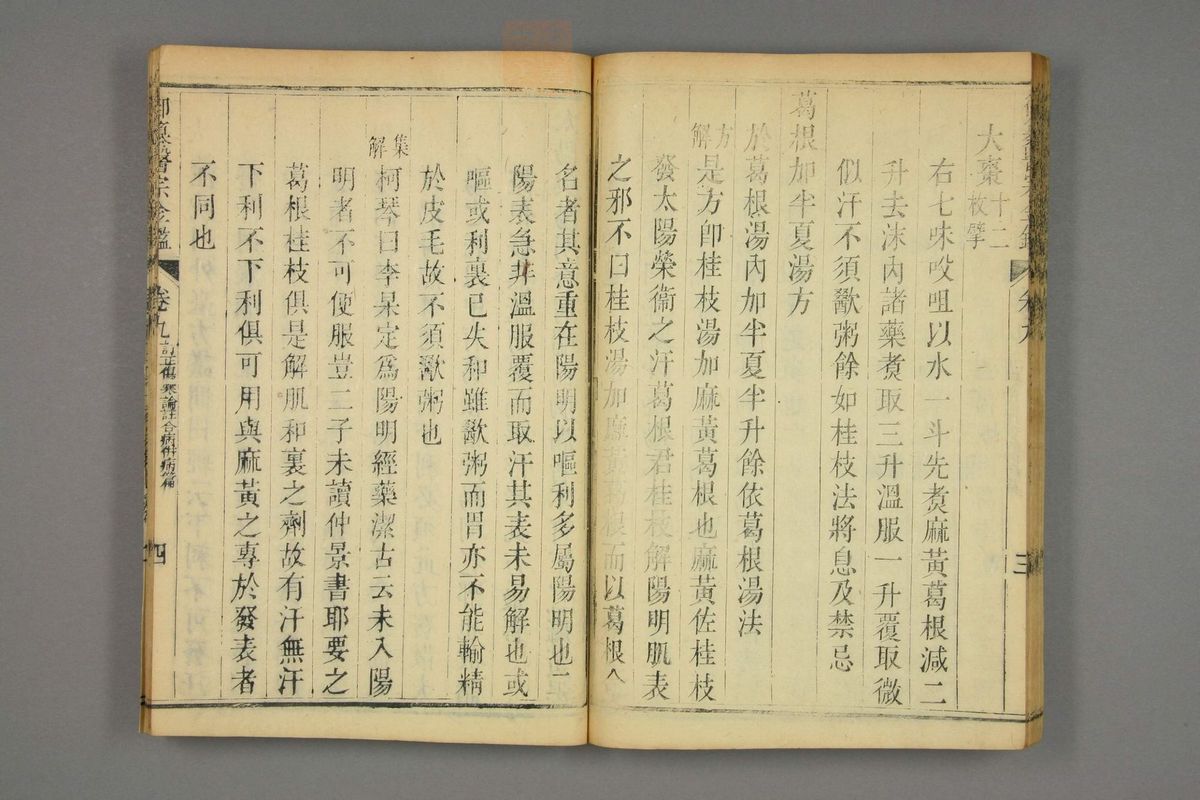 大棗十二枚擘
右七味㕮咀以水一斗先煑麻黃葛根減二
升去沫內諸藥煑取三升溫服一升覆取微
似汗不須歠粥餘如桂枝法將息及禁忌
葛根加半夏湯方
於葛根湯內加半夏半升餘依葛根湯法
方解
是方卽桂枝湯加麻黃葛根也麻黃佐桂枝
發太陽榮衞之汗葛根君桂枝解陽明肌表
之邪不曰桂枝湯加麻黃葛根而以葛根
三
名者其意重在陽明以嘔利多屬陽明也二
陽表急非溫服覆而取汗其表未易解也或
嘔或利裏已失和雖歠粥而胃亦不能輸精
於皮毛故不須歠粥也
集解
柯琴曰李杲定爲陽明經藥潔古云未入陽
明者不可便服豈二子未讀仲景書耶要之
葛根桂枝俱是解肌和裏之劑故有汗無汗
下利不下利俱可用與麻黃之專於發表者
不同也
御纂醫宗金鑑
卷九
訂正傷寒論註合病併病篇
四